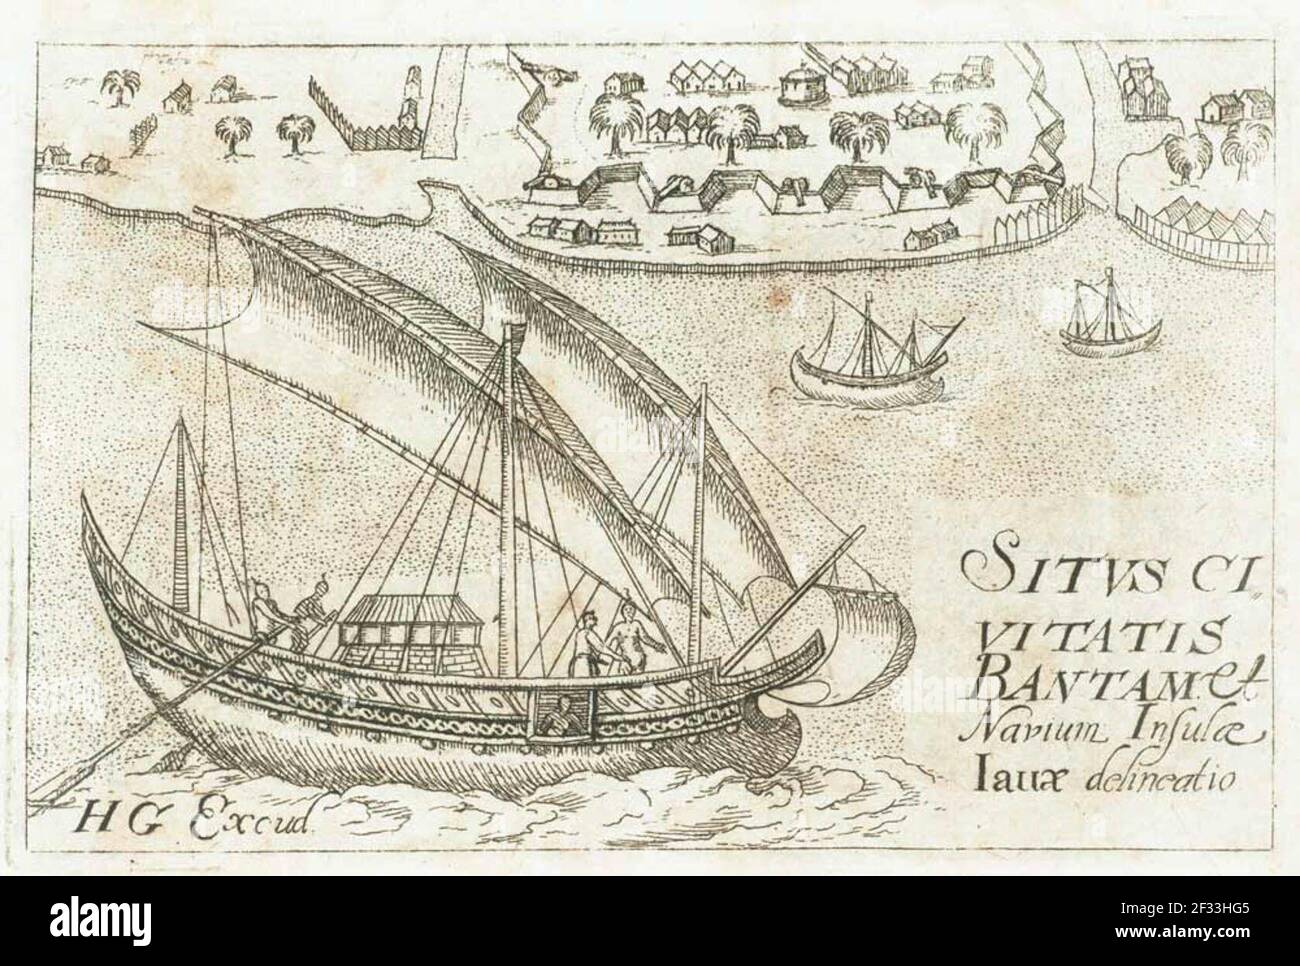 SITVS CI,,
VITATIS
BANTAM. et
Navium Insulæ
Iauæ delineatio
HG Excud.
alamy
Image ID: 2F33HG5
www.alamy.com